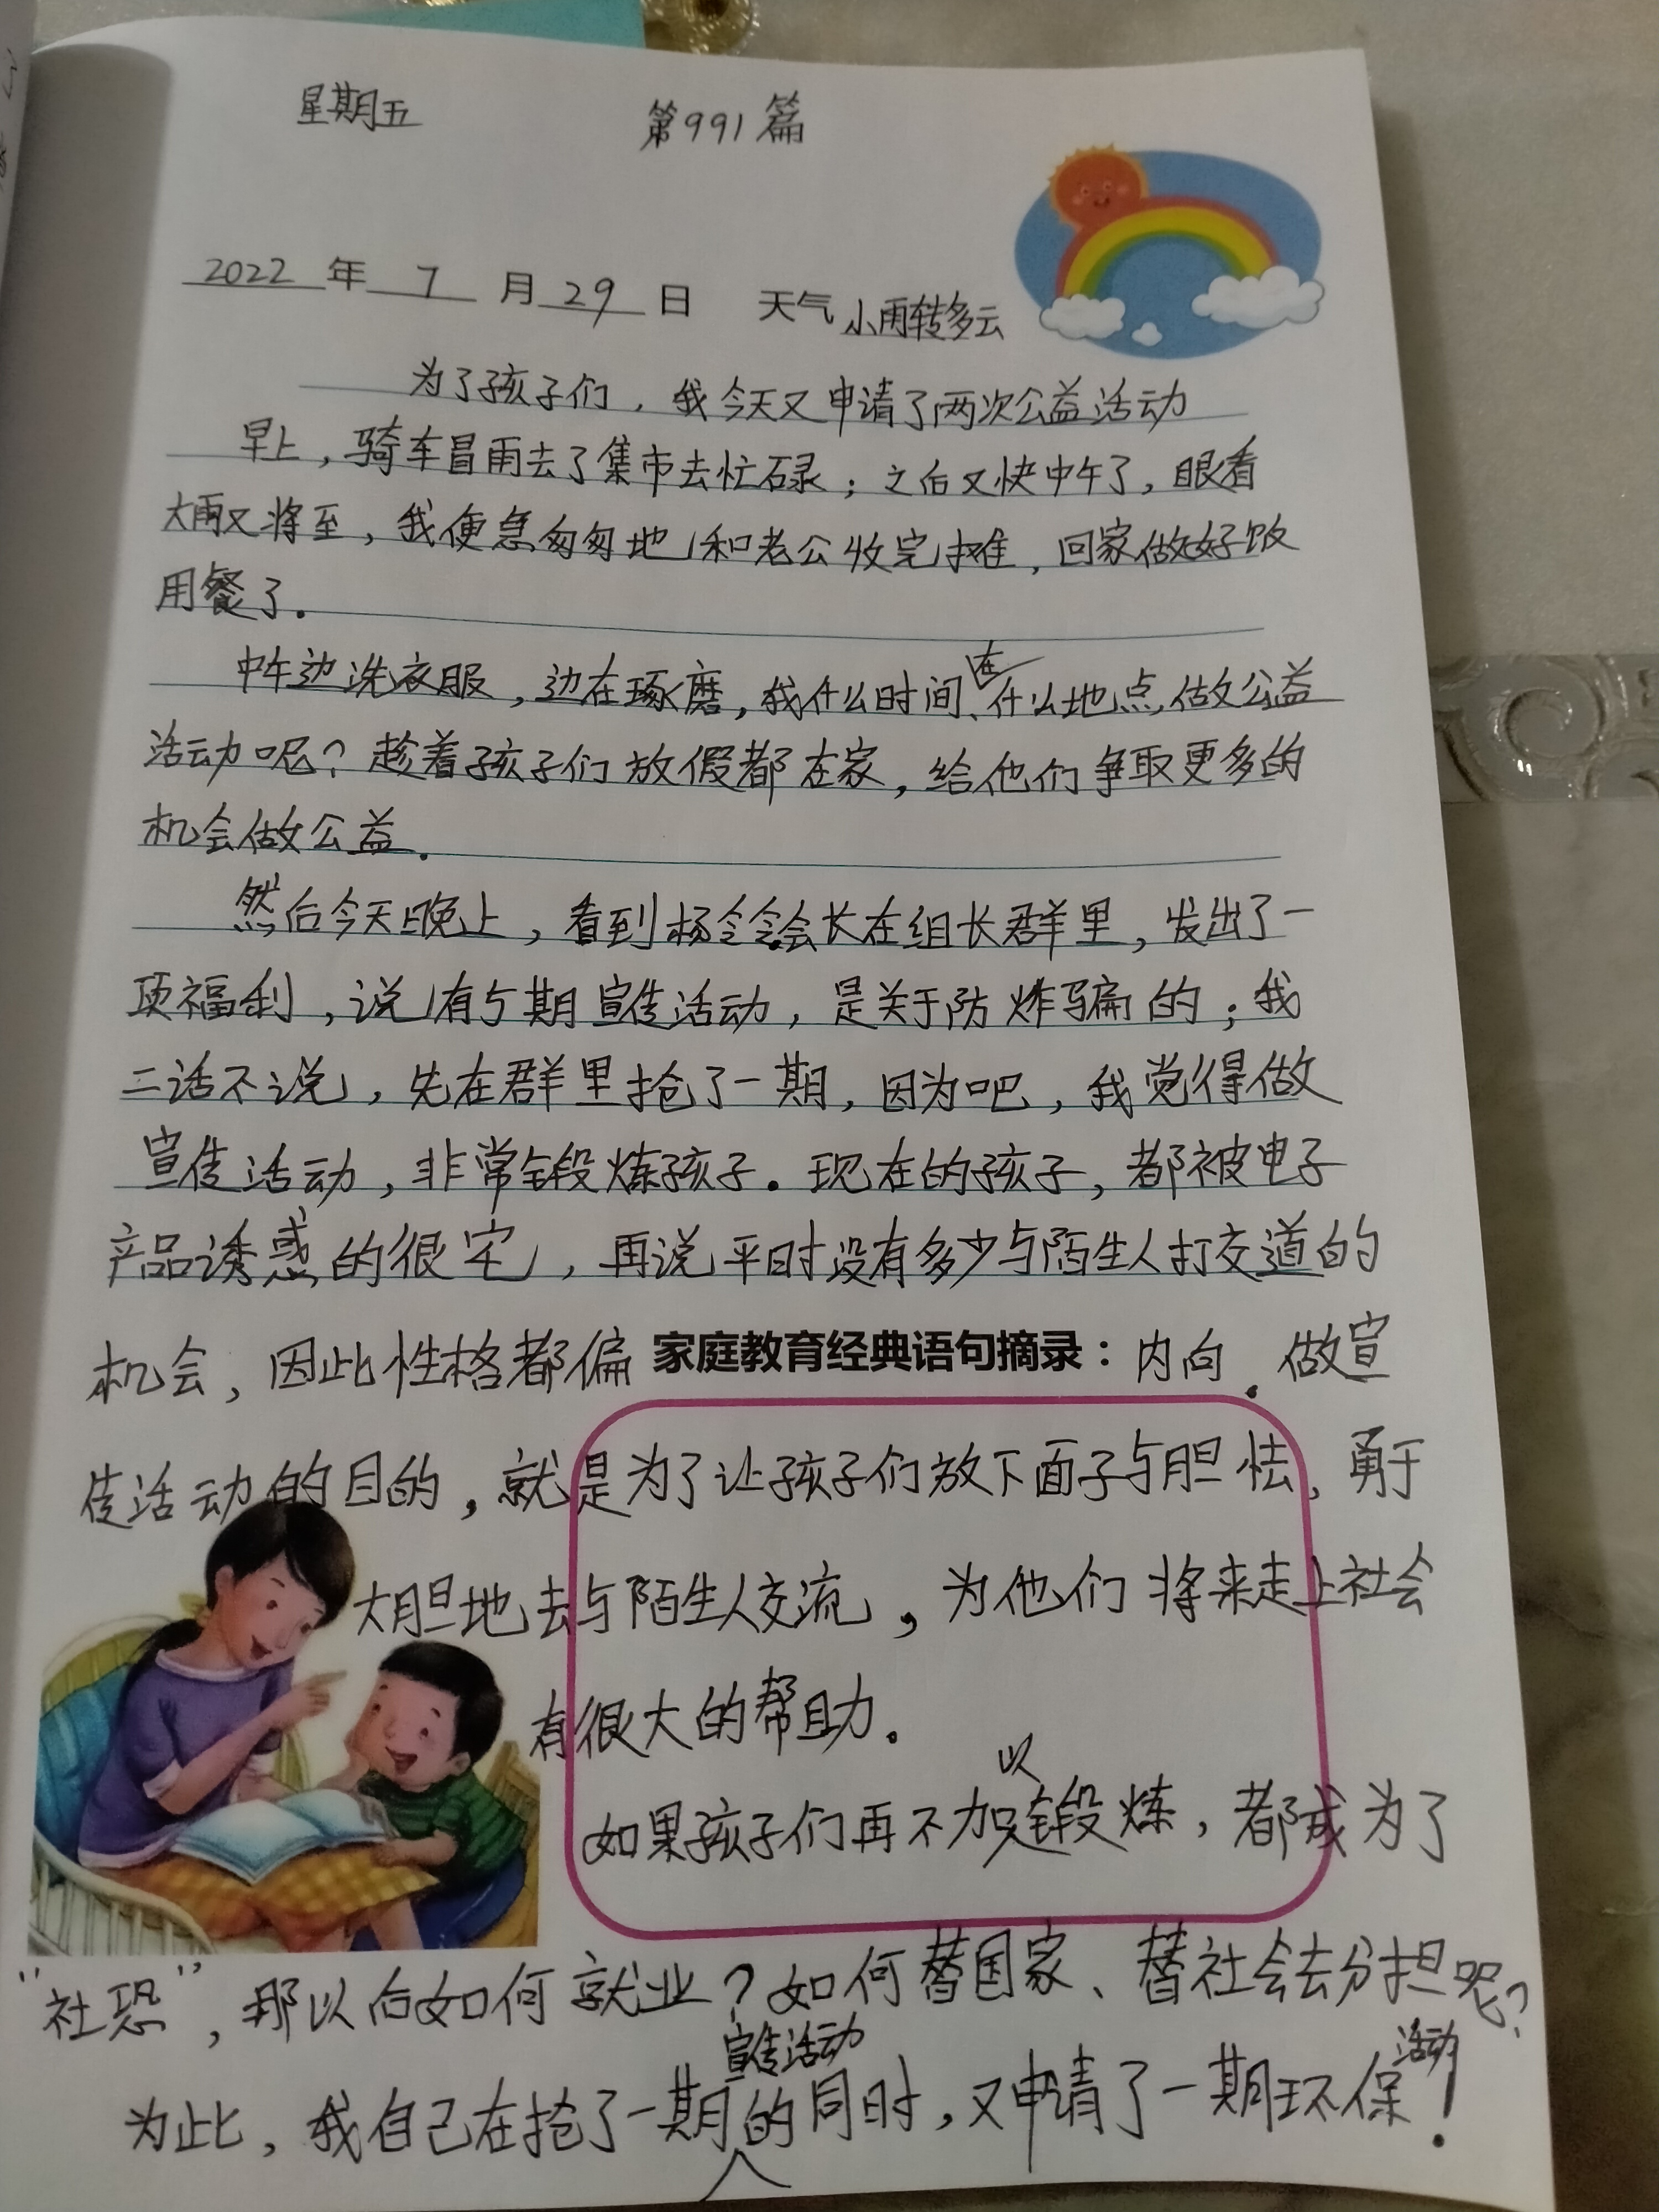 星期五 第991篇
2022年7月29日 天气 小雨转多云
为了孩子们，我今天又申请了两次公益活动
早上，骑车冒雨去了集市去忙碌；之后又快中午了，眼看
大雨又将至，我便急匆匆地和老公收完摊，回家做好饭
用餐了。
中午边洗衣服，边在琢磨，我什么时间、在什么地点做公益
活动呢？趁着孩子们放假都在家，给他们争取更多的
机会做公益。
然后今天晚上，看到杨令令会长在组长群里，发出了一
项福利，说有5期宣传活动，是关于防炸骗的；我
二话不说，先在群里抢了一期，因为吧，我觉得做
宣传活动，非常锻炼孩子。现在的孩子，都被电子
产品诱惑的很宅，再说平时没有多少与陌生人打交道的
机会，因此性格都偏 家庭教育经典语句摘录： 内向。做宣
传活动的目的，就是为了让孩子们放下面子与胆怯，勇于
大胆地去与陌生人交流，为他们将来走上社会
有很大的帮助。
如果孩子们再不加以锻炼，都成为了
“社恐”，那以后如何就业？如何替国家、替社会去分担呢？
为此，我自己在抢了一期宣传活动的同时，又申请了一期环保活动！